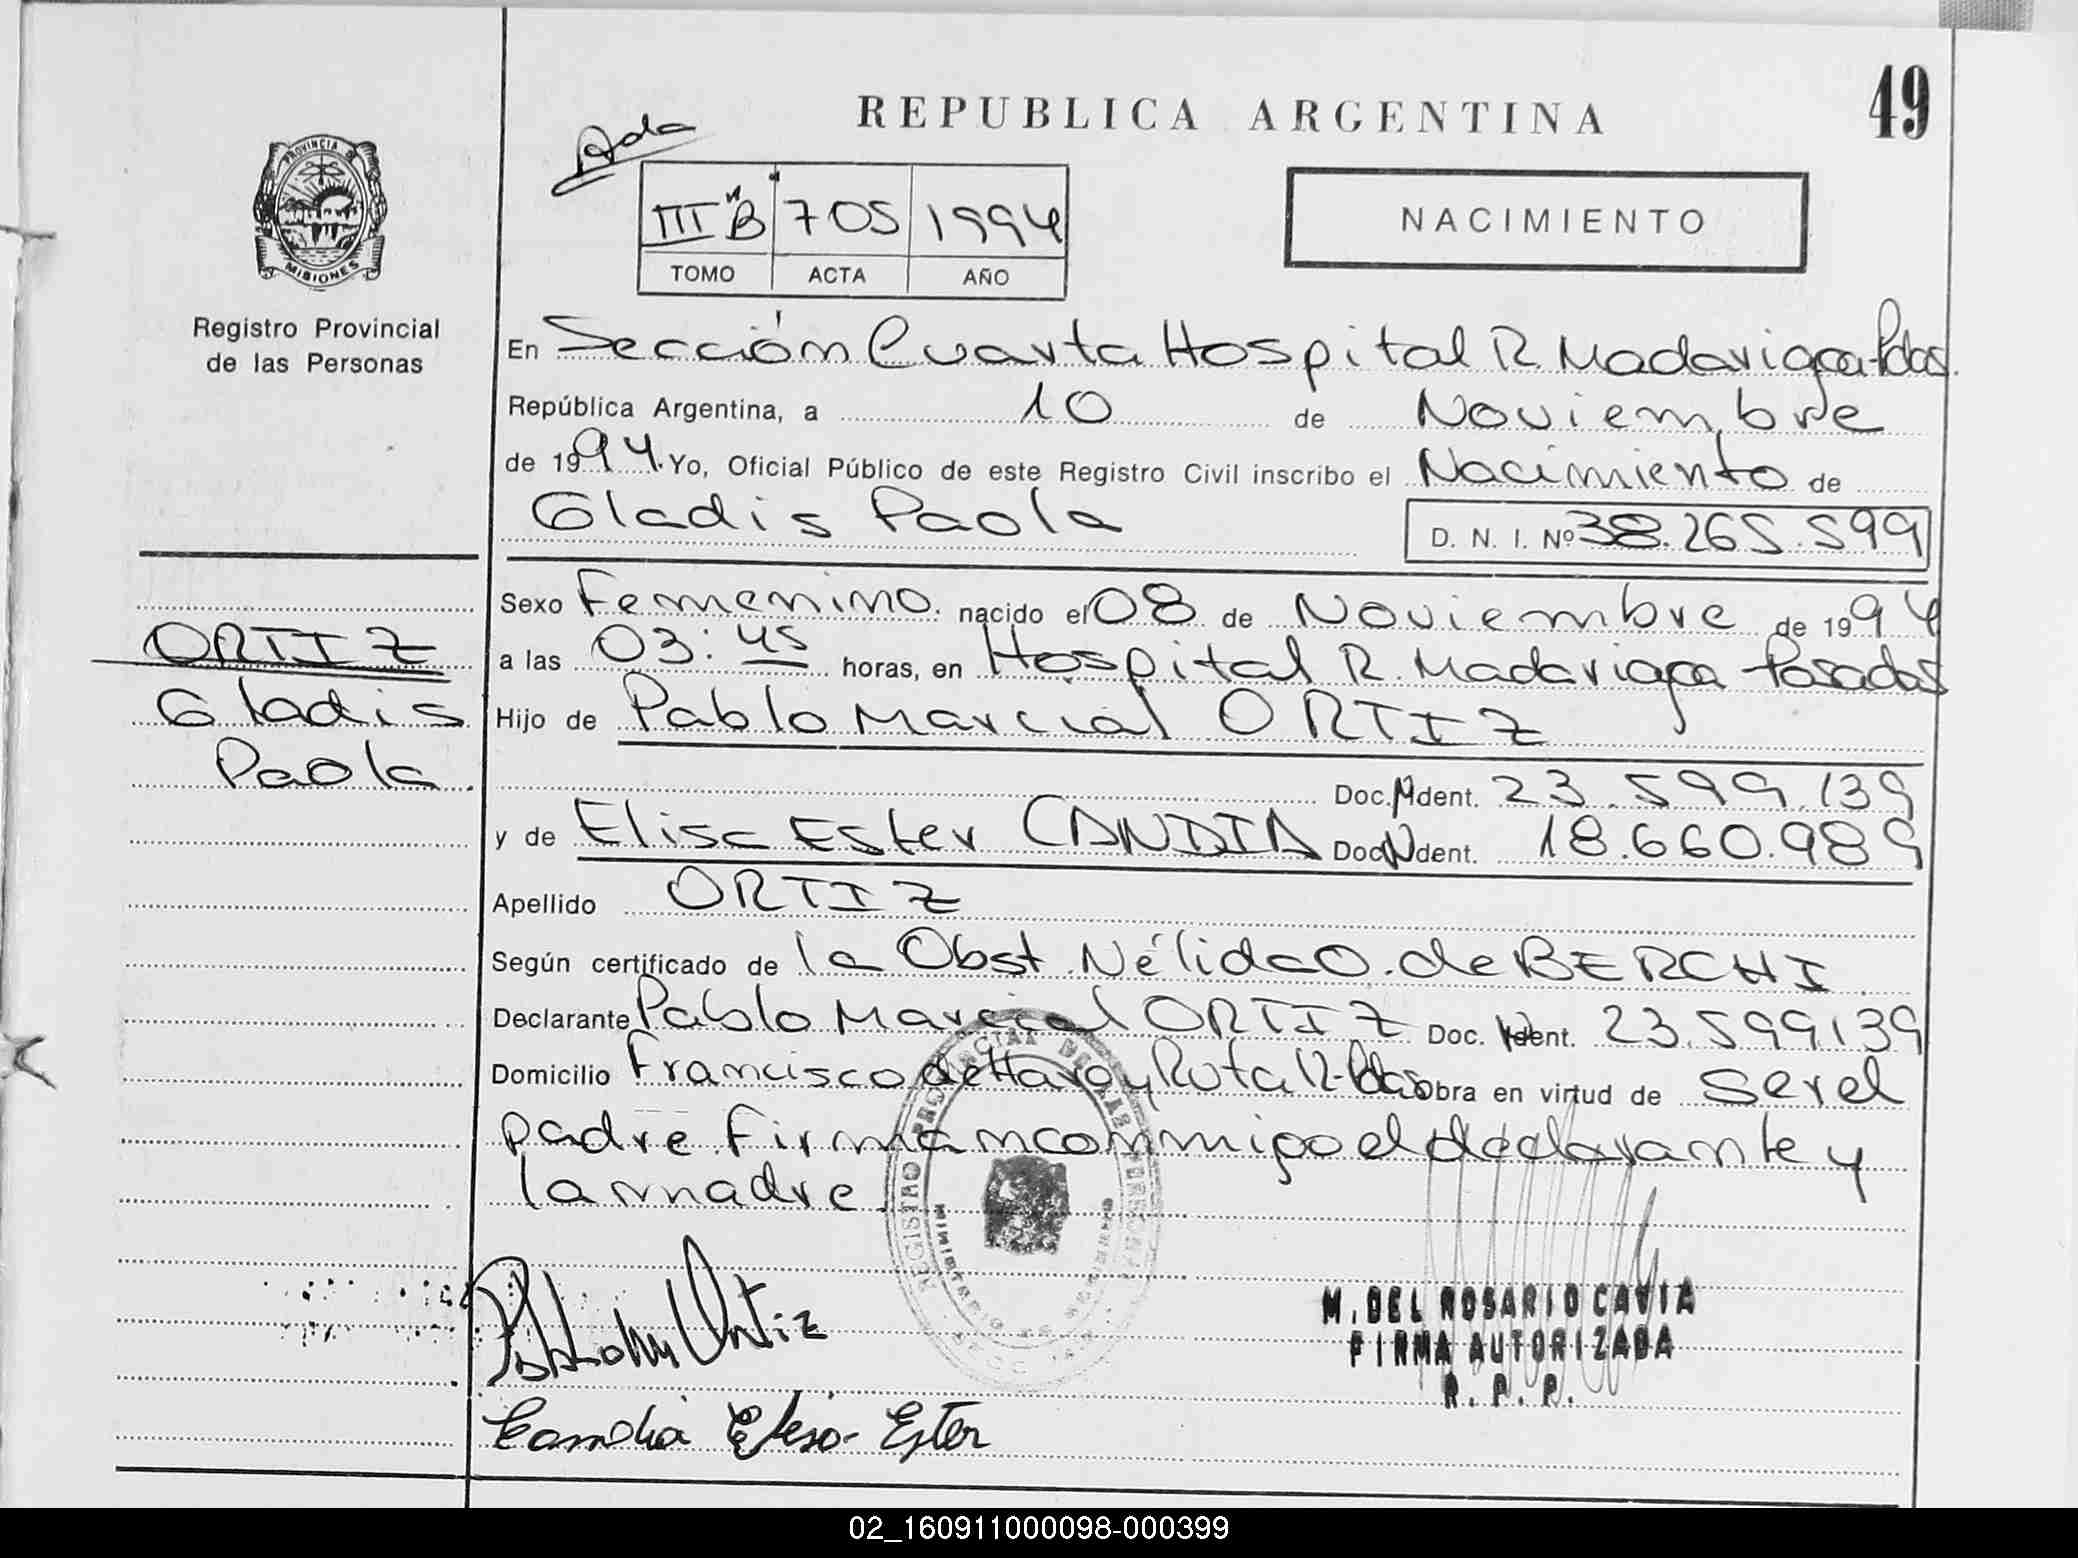 REPUBLICA ARGENTINA
49
Ada
III "B" 705 1994
TOMO ACTA AÑO
NACIMIENTO
PROVINCIA DE
MISIONES
Registro Provincial
de las Personas
En Sección Cuarta Hospital R. Madariaga-Pdas.
República Argentina, a 10 de Noviembre
de 1994. Yo, Oficial Público de este Registro Civil inscribo el Nacimiento de
Gladis Paola
D. N. I. Nº 38.265.599
Sexo Femenino. nacido el 08 de Noviembre de 1994
a las 03:45 horas, en Hospital R. Madariaga Posadas
Hijo de Pablo Marcial ORTIZ
Doc. N Ident. 23.599.139
y de Elisa Ester CANDIA Doc. N Ident. 18.660.989
Apellido ORTIZ
Según certificado de la Obst. Nélida O. de BERCHI
Declarante Pablo Marcial ORTIZ Doc. Ident. 23.599.139
Domicilio Francisco de Haro y Ruta 12-Pdas Obra en virtud de ser el
padre. Firman conmigo el declarante y
la madre.
ORTIZ
Gladis
Paola.
REGISTRO PROVINCIAL DE LAS PERSONAS
MINISTERIO DE GOBIERNO
Ortiz
Candia Elisa Ester
M. DEL ROSARIO CAVIA
FIRMA AUTORIZADA
R. P. P.
02_160911000098-000399